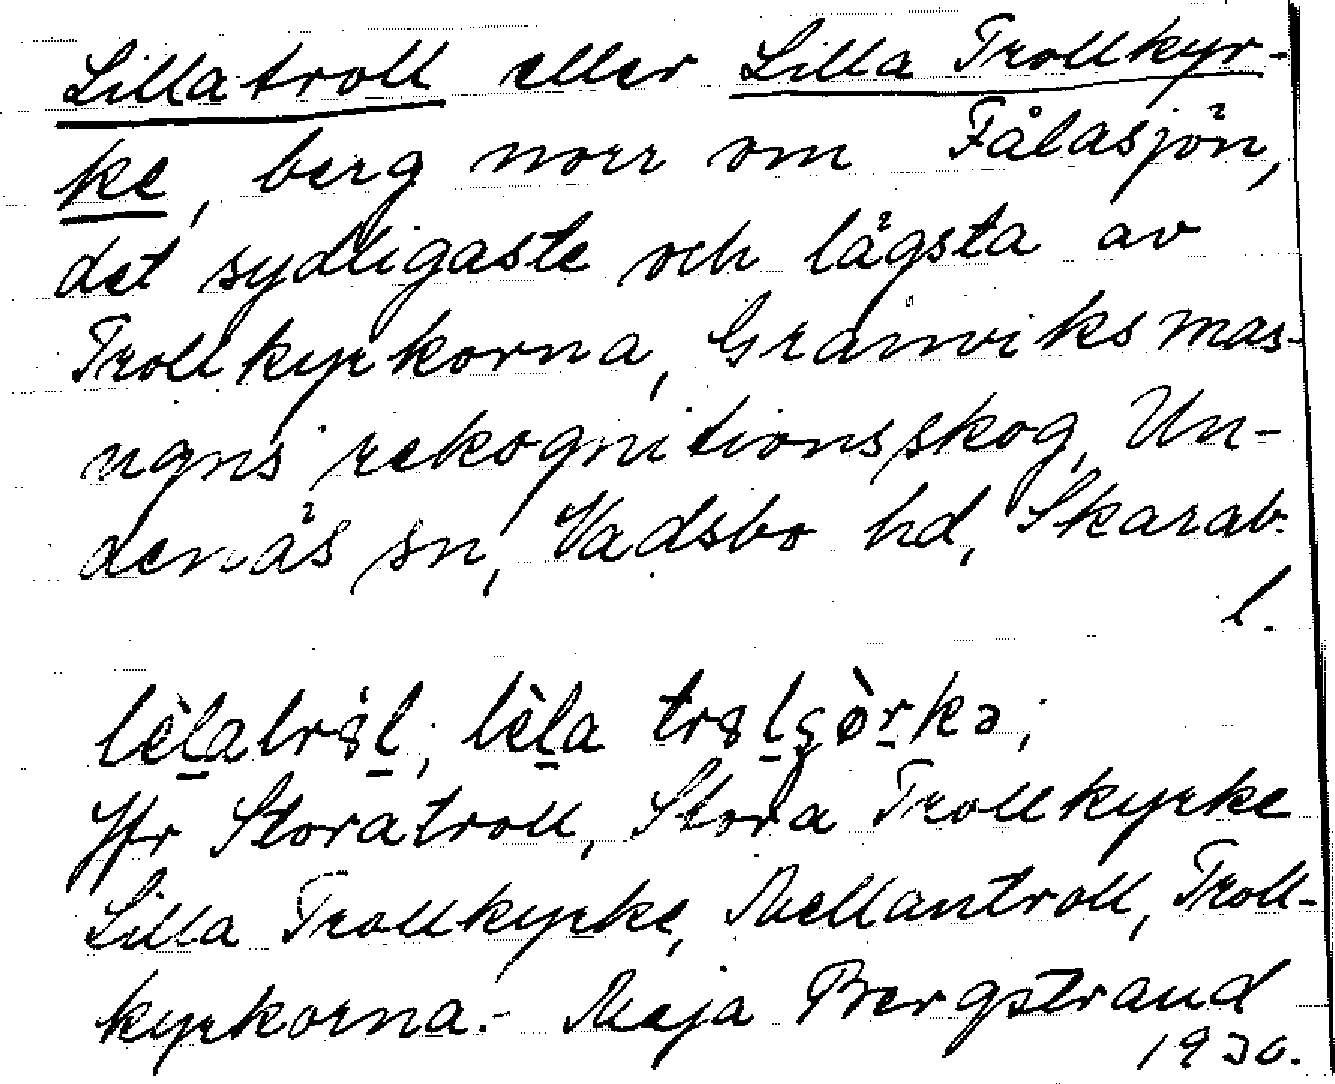 Lillatroll eller Lilla Trollkyr-
ke, berg norr om Fålasjön,
det sydligaste och lägsta av
Trollkyrkorna, Granviks mas-
ugns rekognitionsskog, Un-
denäs sn, Vadsbo hd, Skarab.
l.
Jfr Storatroll, Stora Trollkyrke
Lilla Trollkyrke, Mellantroll, Troll-
kyrkorna.- Maja Bergstrand
1930.